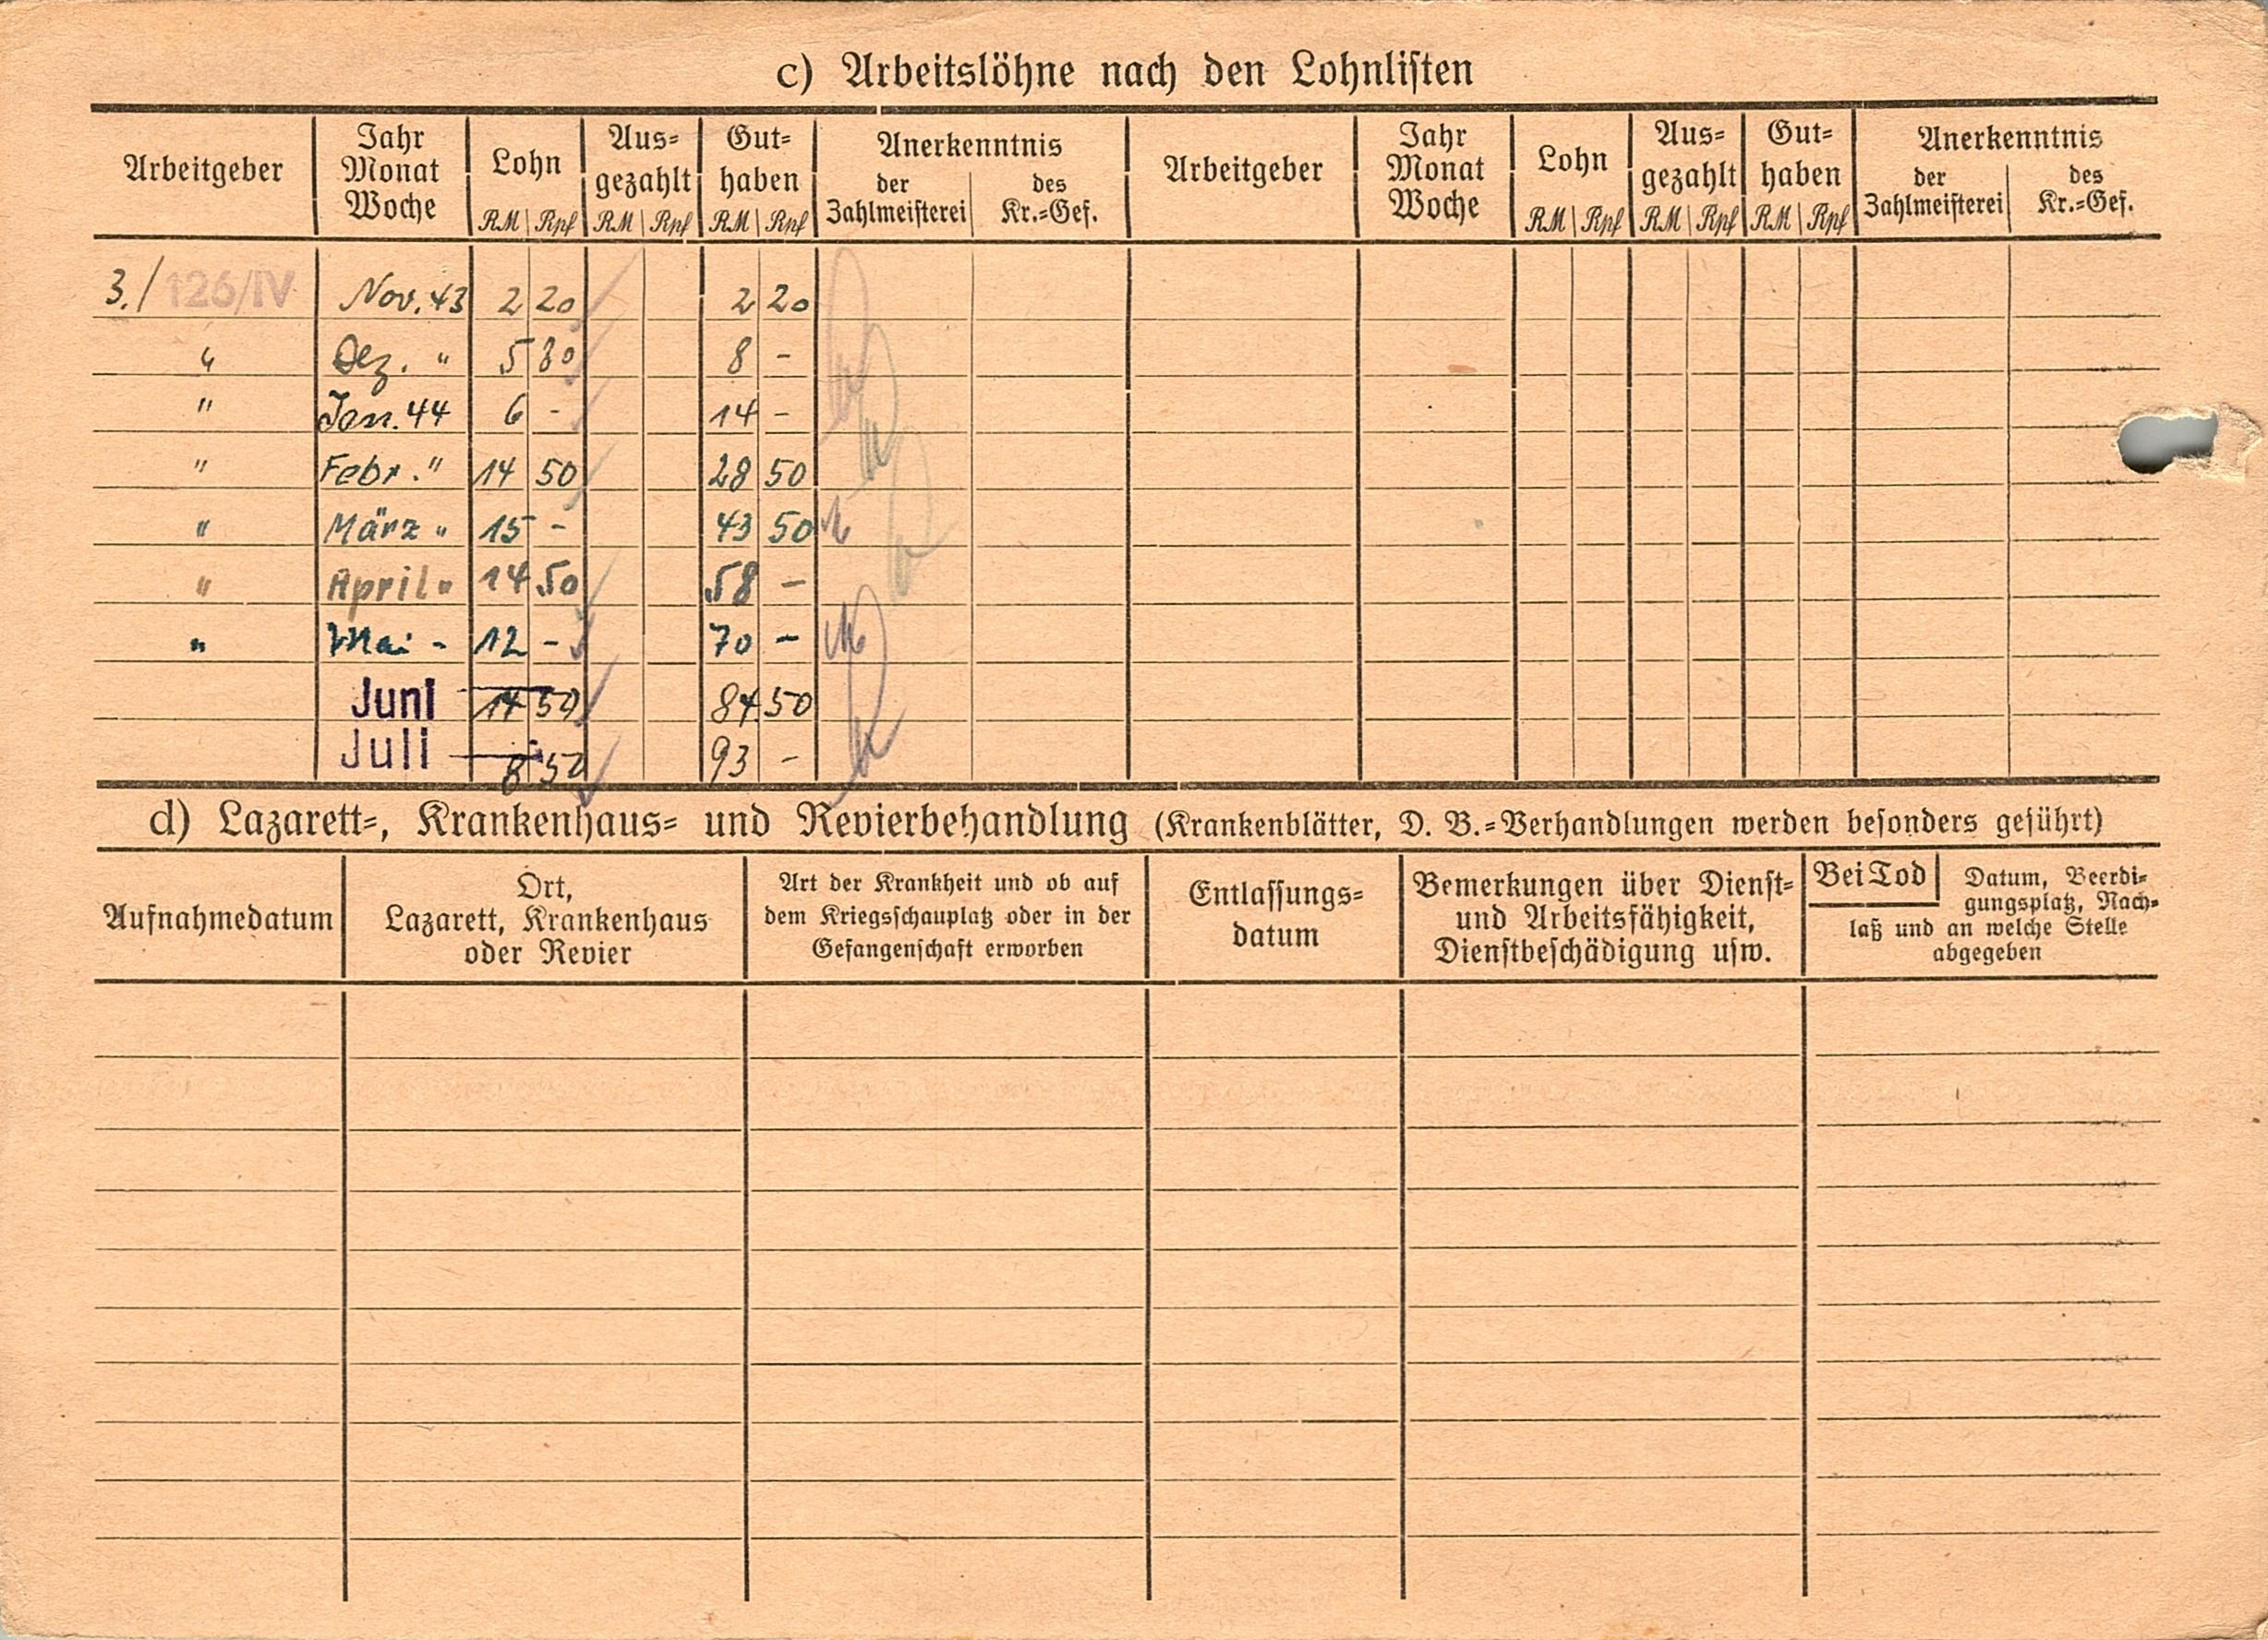 c) Arbeitslöhne nach den Lohnlisten
Arbeitgeber Jahr Monat Woche Lohn RM Rpf Aus-gezahlt RM Rpf Gut-haben RM Rpf Anerkenntnis der Zahlmeisterei des Kr.-Gef. Arbeitgeber Jahr Monat Woche Lohn RM Rpf Aus-gezahlt RM Rpf Gut-haben RM Rpf Anerkenntnis der Zahlmeisterei des Kr.-Gef.
3./ 126/IV Nov. 43 2 20 2 20
" Dez. " 5 80 8 -
" Jan. 44 6 - 14 -
" Febr. " 14 50 28 50
" März " 15 - 43 50
" April " 14 50 58 -
" Mai - 12 - 70 -
Juni 14 50 84 50
Juli 8 50 93 -
d) Lazarett-, Krankenhaus- und Revierbehandlung (Krankenblätter, D. B.-Verhandlungen werden besonders geführt)
Aufnahmedatum
Ort,
Lazarett, Krankenhaus
oder Revier
Art der Krankheit und ob auf
dem Kriegsschauplatz oder in der
Gefangenschaft erworben
Entlassungs-
datum
Bemerkungen über Dienst-
und Arbeitsfähigkeit,
Dienstbeschädigung usw.
Bei Tod Datum, Beerdi-
gungsplatz, Nach-
laß und an welche Stelle
abgegeben